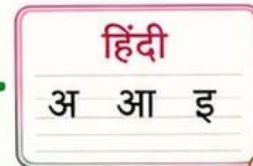 हिंदी
अ आ इ